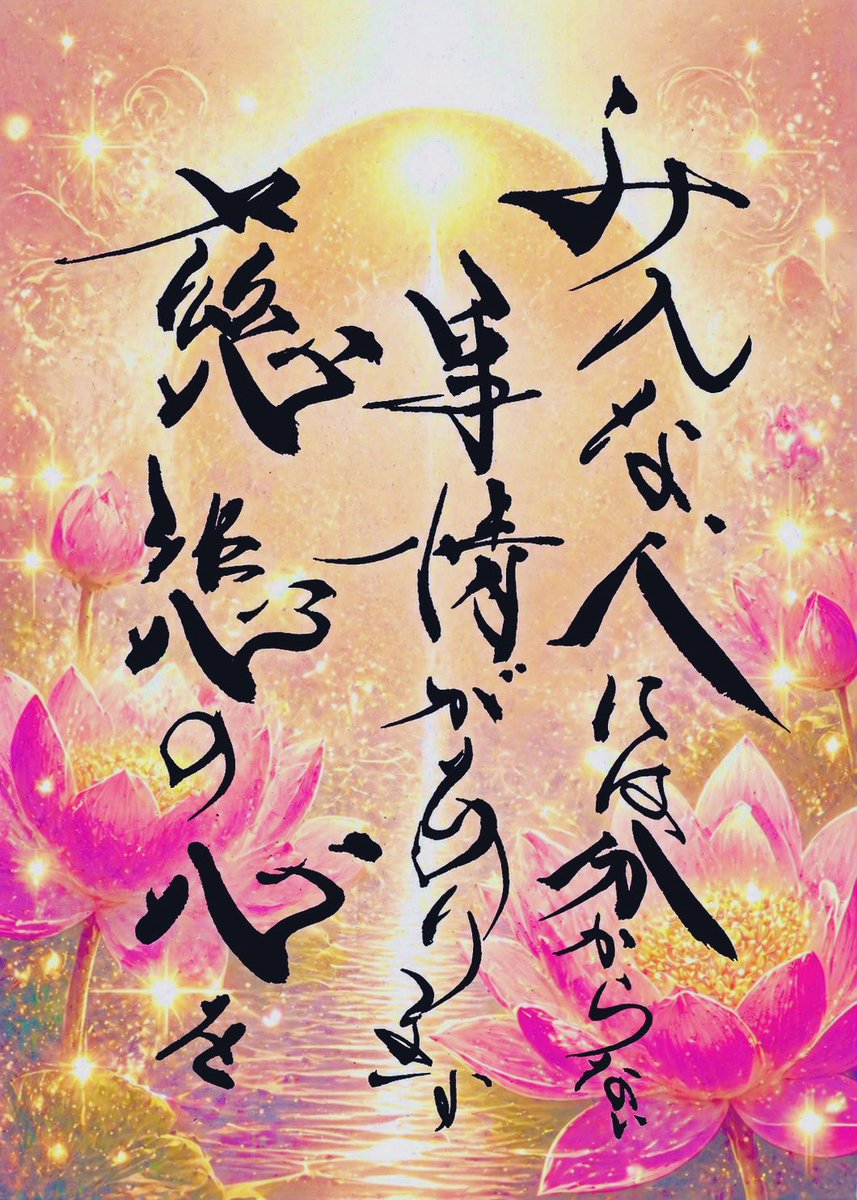 みんな人には分からない
事情があります
慈悲の心を